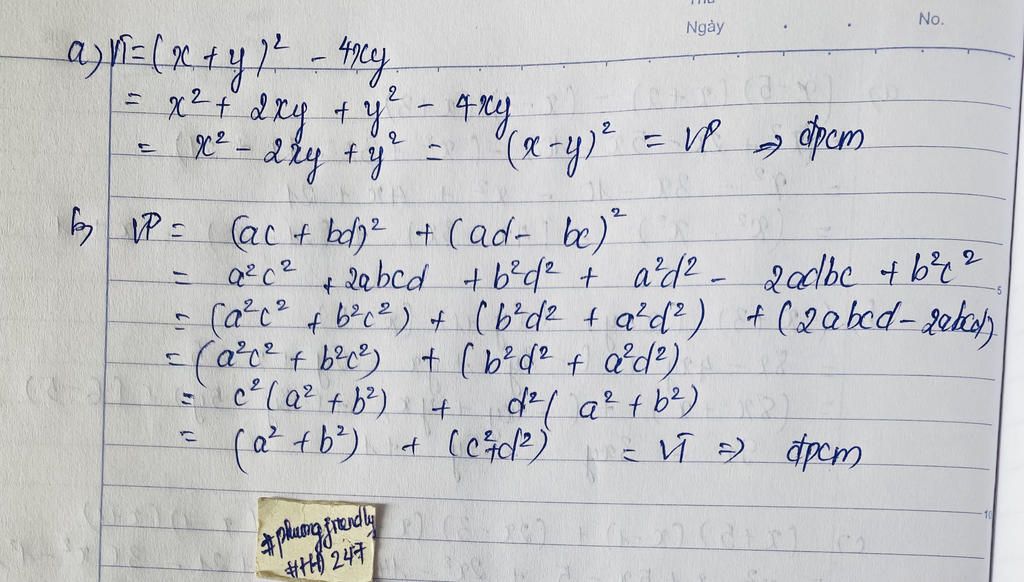 Thứ
Ngày . . No.
a) VT = (x + y)² - 4xy
= x² + 2xy + y² - 4xy
= x² - 2xy + y² = (x-y)² = VP ⇒ đpcm
b, VP = (ac + bd)² + (ad - bc)²
= a²c² + 2abcd + b²d² + a²d² - 2adbc + b²c²
= (a²c² + b²c²) + (b²d² + a²d²) + (2abcd - 2abcd)
= (a²c² + b²c²) + (b²d² + a²d²)
= c²(a² + b²) + d²(a² + b²)
= (a² + b²) + (c²+d²) = VT ⇒ đpcm
5
10
#phuongfriendly
#HĐ 247